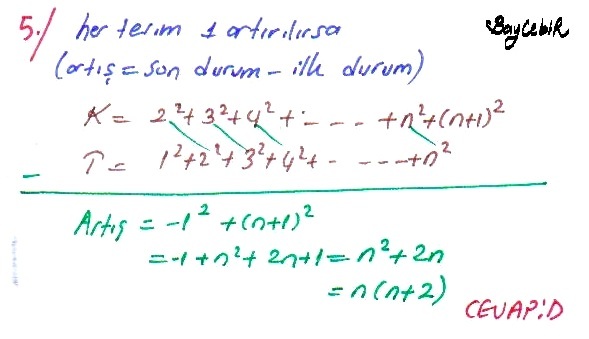 5./ her terim 1 artırılırsa
BayCebiR
(artış = son durum - ilk durum)
K = 2²+3²+4²+ - - - - +n²+(n+1)²
T = 1²+2²+3²+4²+ - - - - -+n²
-
Artış = -1² +(n+1)²
= -1+n²+ 2n+1 = n²+2n
= n(n+2)
CEVAP:D